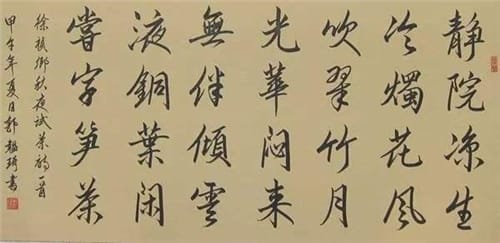 静院凉生
冷燭花风
吹翠竹月
光華闷来
無伴傾雲
液銅葉闲
嘗字笋茶
徐祯卿秋夜试茶诗一首
甲午年夏日郭
書